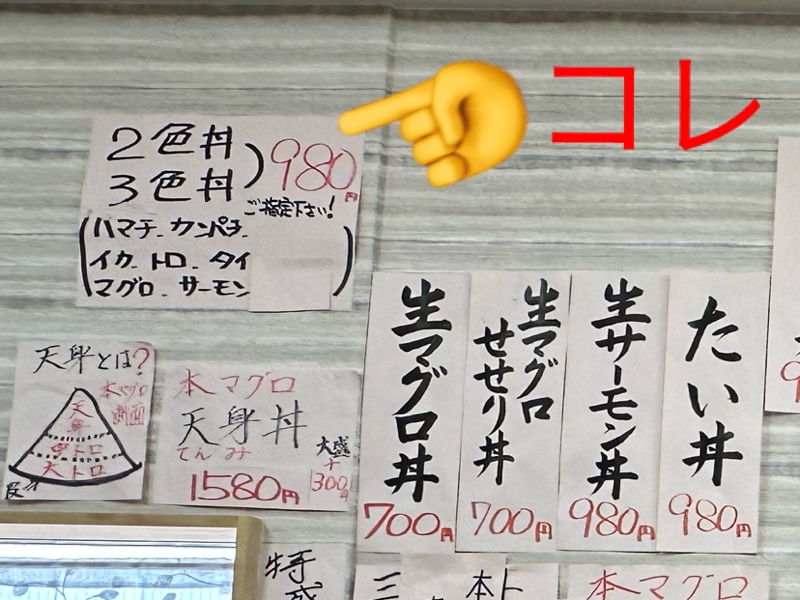 コレ
2色丼
3色丼
)980円
ご指定下さい!
(ハマチ. カンパチ.
イカ. トロ. タイ
マグロ. サーモン)
天身とは?
本マグロ
断面
天身
中トロ
大トロ
本マグロ
天身丼
てんみ
1580円
大盛
+
300円
生マグロ丼
700円
生マグロ
せせり丼
700円
生サーモン丼
980円
たい丼
980円
9
特盛
三
本ト
本マグロ